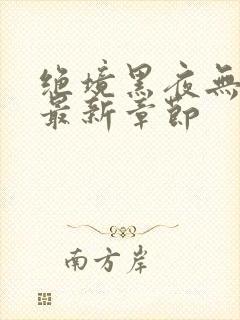 绝境黑夜無
最新章節
南方岸